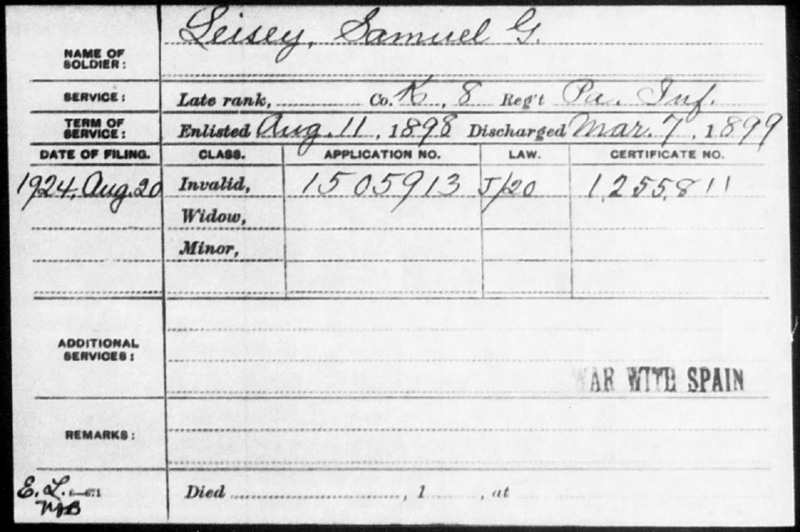 NAME OF SOLDIER: Leisey, Samuel G.
SERVICE: Late rank, Co. K, 8 Reg't Pa. Inf.
TERM OF SERVICE: Enlisted Aug. 11, 1898 Discharged Mar. 7, 1899
DATE OF FILING. CLASS. APPLICATION NO. LAW. CERTIFICATE NO.
1924, Aug. 20 Invalid, 1505913 J/20 1,255,811
Widow,
Minor,
ADDITIONAL SERVICES:
WAR WITH SPAIN
REMARKS:
E. L. 6—671 Died , 1 , at